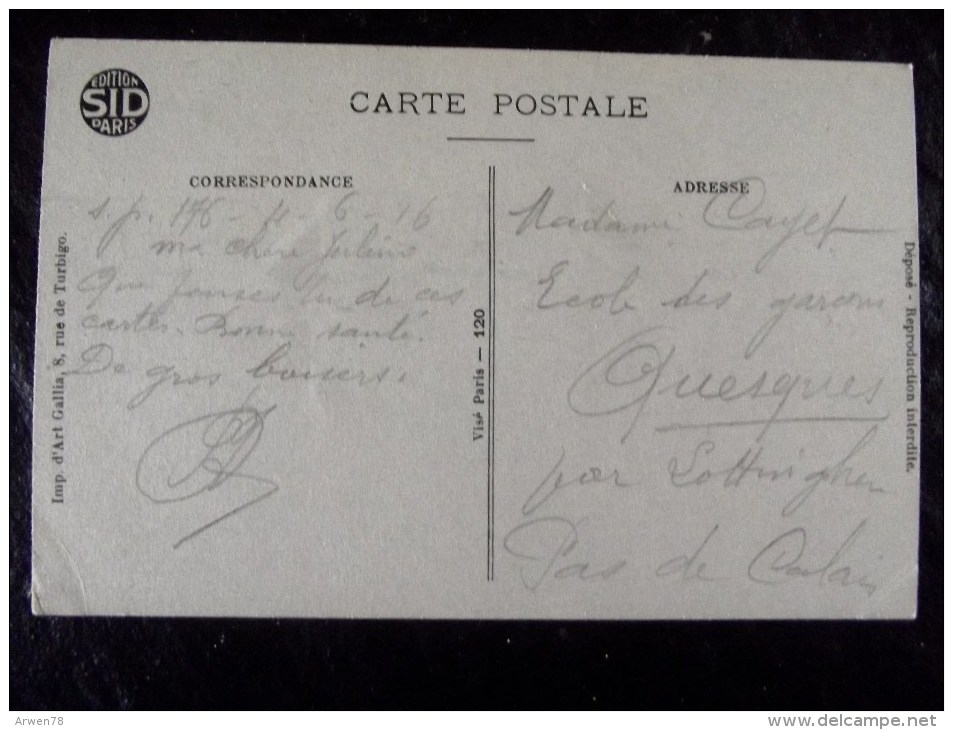 EDITION
SID
PARIS
CARTE POSTALE
CORRESPONDANCE
s.p. 176 - 4 - 6 - 16
ma chère Juliene
Que penses tu de ces
cartes. Bonne santé.
De gros baisers.
ADRESSE
Madame Cayet
Ecole des garçons
Quesques
par Lottinghen
Pas de Calais
Imp. d'Art Gallia, 8, rue de Turbigo.
Visé Paris — 120
Déposé - Reproduction interdite.
Arwen78
www.delcampe.net